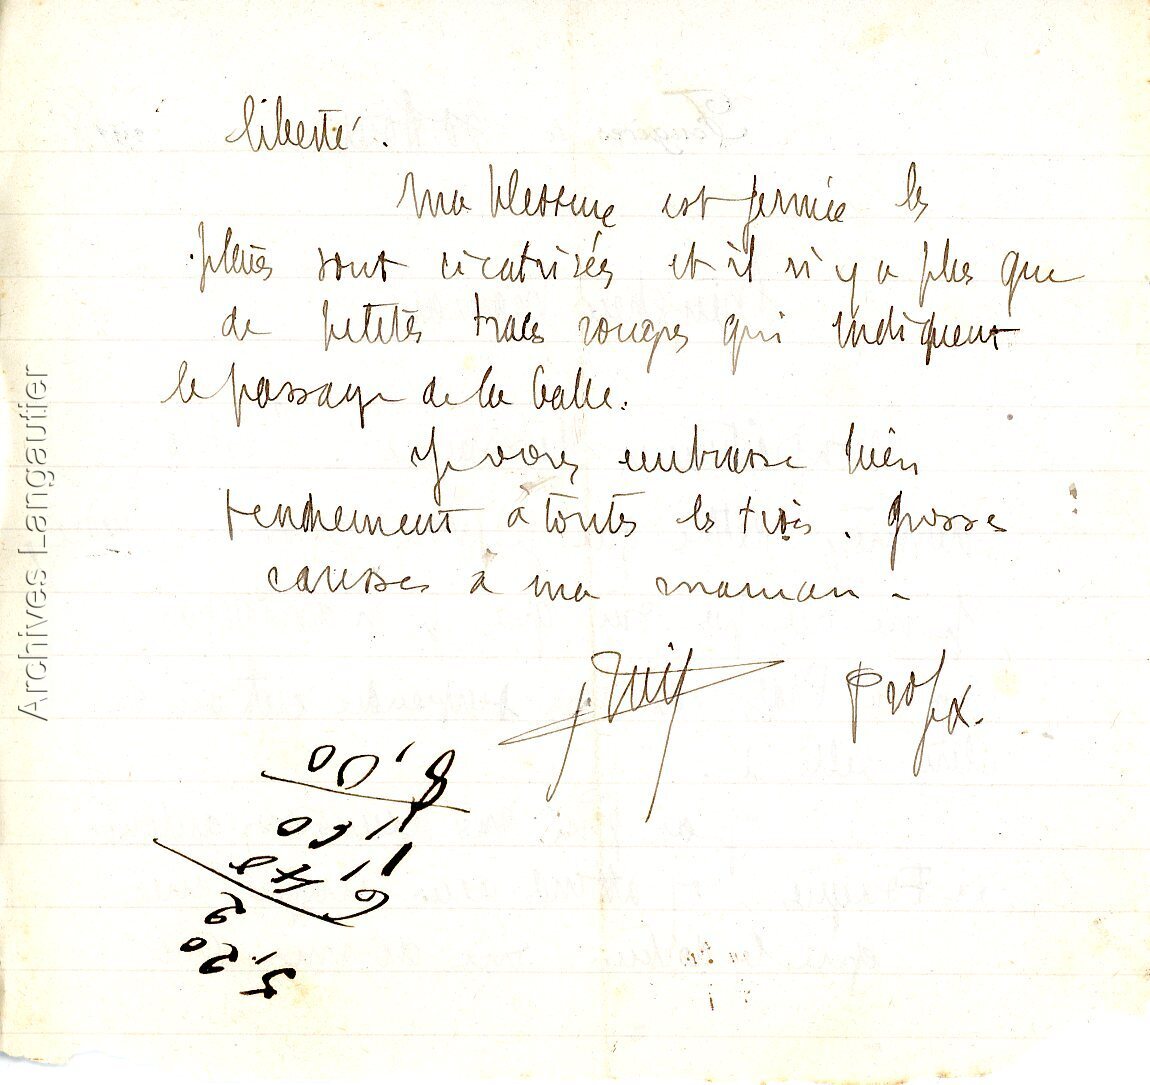 liberté.
Ma blessure est fermée les
plaies sont cicatrisées et il n'y a plus que
de petites traces rouges qui indiquent
le passage de la balle.
Je vous embrasse bien
tendrement à toutes les trois. grosses
caresses à ma maman -
8,00
1,60
6,40
2
3,20
Archives Langautier